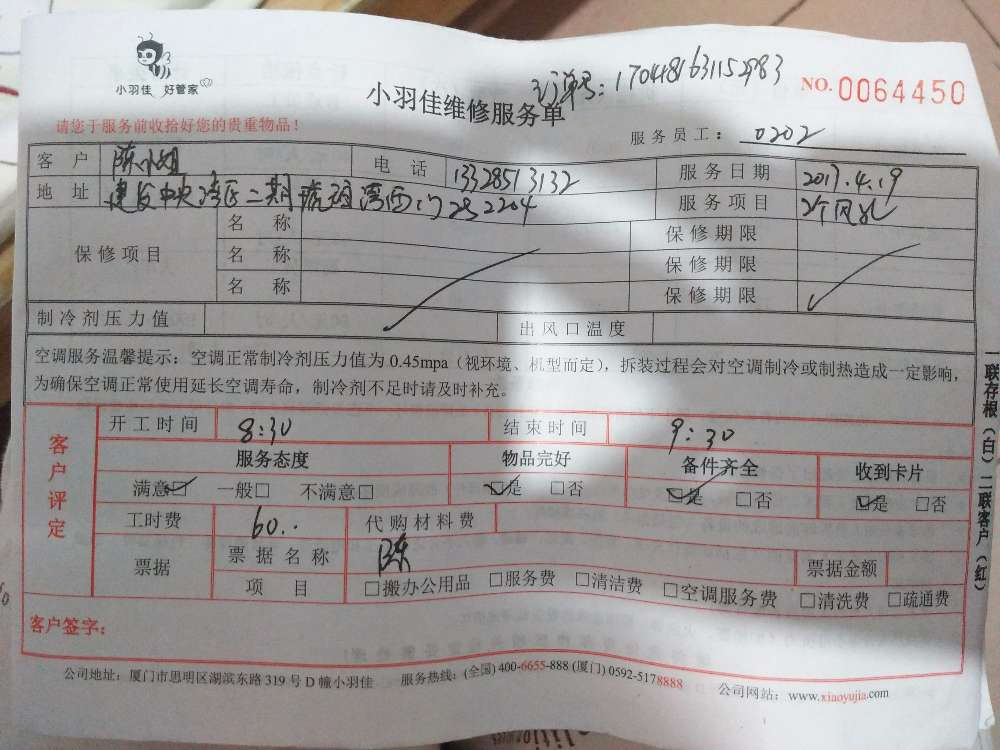 小羽佳 好管家
订单号：17048163115
NO.0064450
小羽佳维修服务单
请您于服务前收拾好您的贵重物品！
服务员工：0202
客 户 陈小姐 电 话 13328513132 服务日期 2017.4.19
地 址 建发中央湾区二期 湾西 2204 服务项目
保修项目 名 称 保修期限
名 称 保修期限
名 称 保修期限
制冷剂压力值 出风口温度
空调服务温馨提示：空调正常制冷剂压力值为0.45mpa（视环境、机型而定），拆装过程会对空调制冷或制热造成一定影响，
为确保空调正常使用延长空调寿命，制冷剂不足时请及时补充。
客户评定
开工时间 8:30 结束时间 9:30
服务态度 物品完好 备件齐全 收到卡片
满意☑ 一般□ 不满意□ ☑是 □否 ☑是 □否 ☑是 □否
工时费 60.. 代购材料费
票据 票据名称 陈 票据金额
项 目 □搬办公用品 □服务费 □清洁费 □空调服务费 □清洗费 □疏通费
客户签字：
公司地址：厦门市思明区湖滨东路319号D幢小羽佳 服务热线：(全国) 400-6655-888 (厦门) 0592-5178888 公司网站：www.xiaoyujia.com
一联存根（白）二联客户（红）